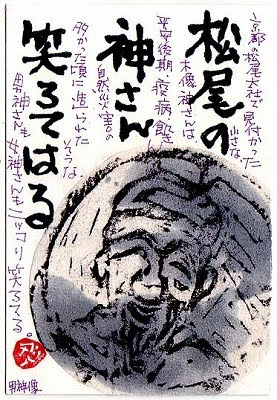 松尾の
神さん
笑ろてはる
京都の松尾大社で見付かった
小さな
木像の神さんは
平安後期、疫病、飢きん
自然災害の
多かった頃に造られた
そうな
男神さんも
女神さんもニッコリ笑ろてる。
男神像